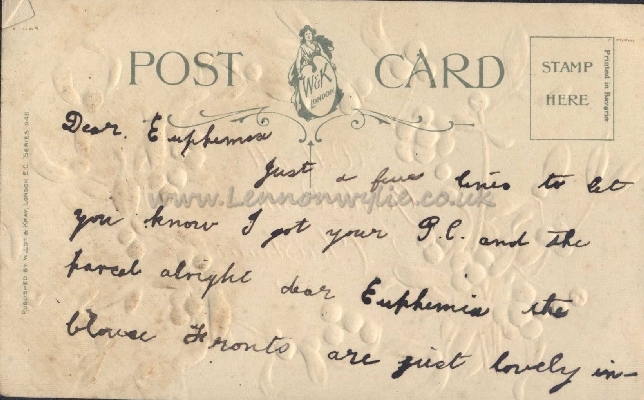 POST CARD
W&K
LONDON
STAMP
HERE
Printed in Bavaria
PUBLISHED BY WILDT & KRAY, LONDON E.C. SERIES
Dear. Euphemia
Just a few lines to let
www.Lennonwylie.co.uk
you know I got your P.C. and the
parcel alright dear Euphemia the
blouse Fronts are just lovely in-